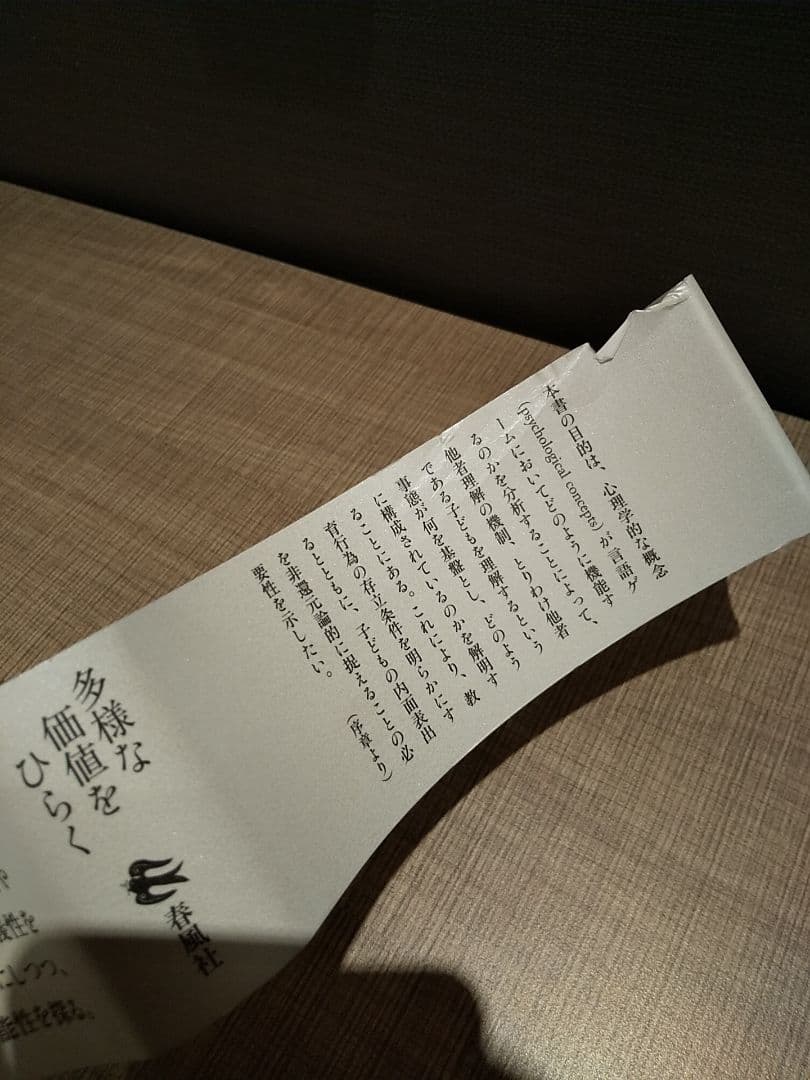 本書の目的は、心理学的な概念
(psychological conceps)が言語ゲ
ームにおいてどのように機能す
るのかを分析することによって、
他者理解の機制、とりわけ他者
である子どもを理解するという
事態が何を基盤とし、どのよう
に構成されているのかを解明す
ることにある。これにより、教
育行為の存立条件を明らかにす
るとともに、子どもの内面表出
を非還元論的に捉えることの必
要性を示したい。
(序章より)
多様な
価値を
ひらく
春風社
性を
にしつつ、
能性を探る。